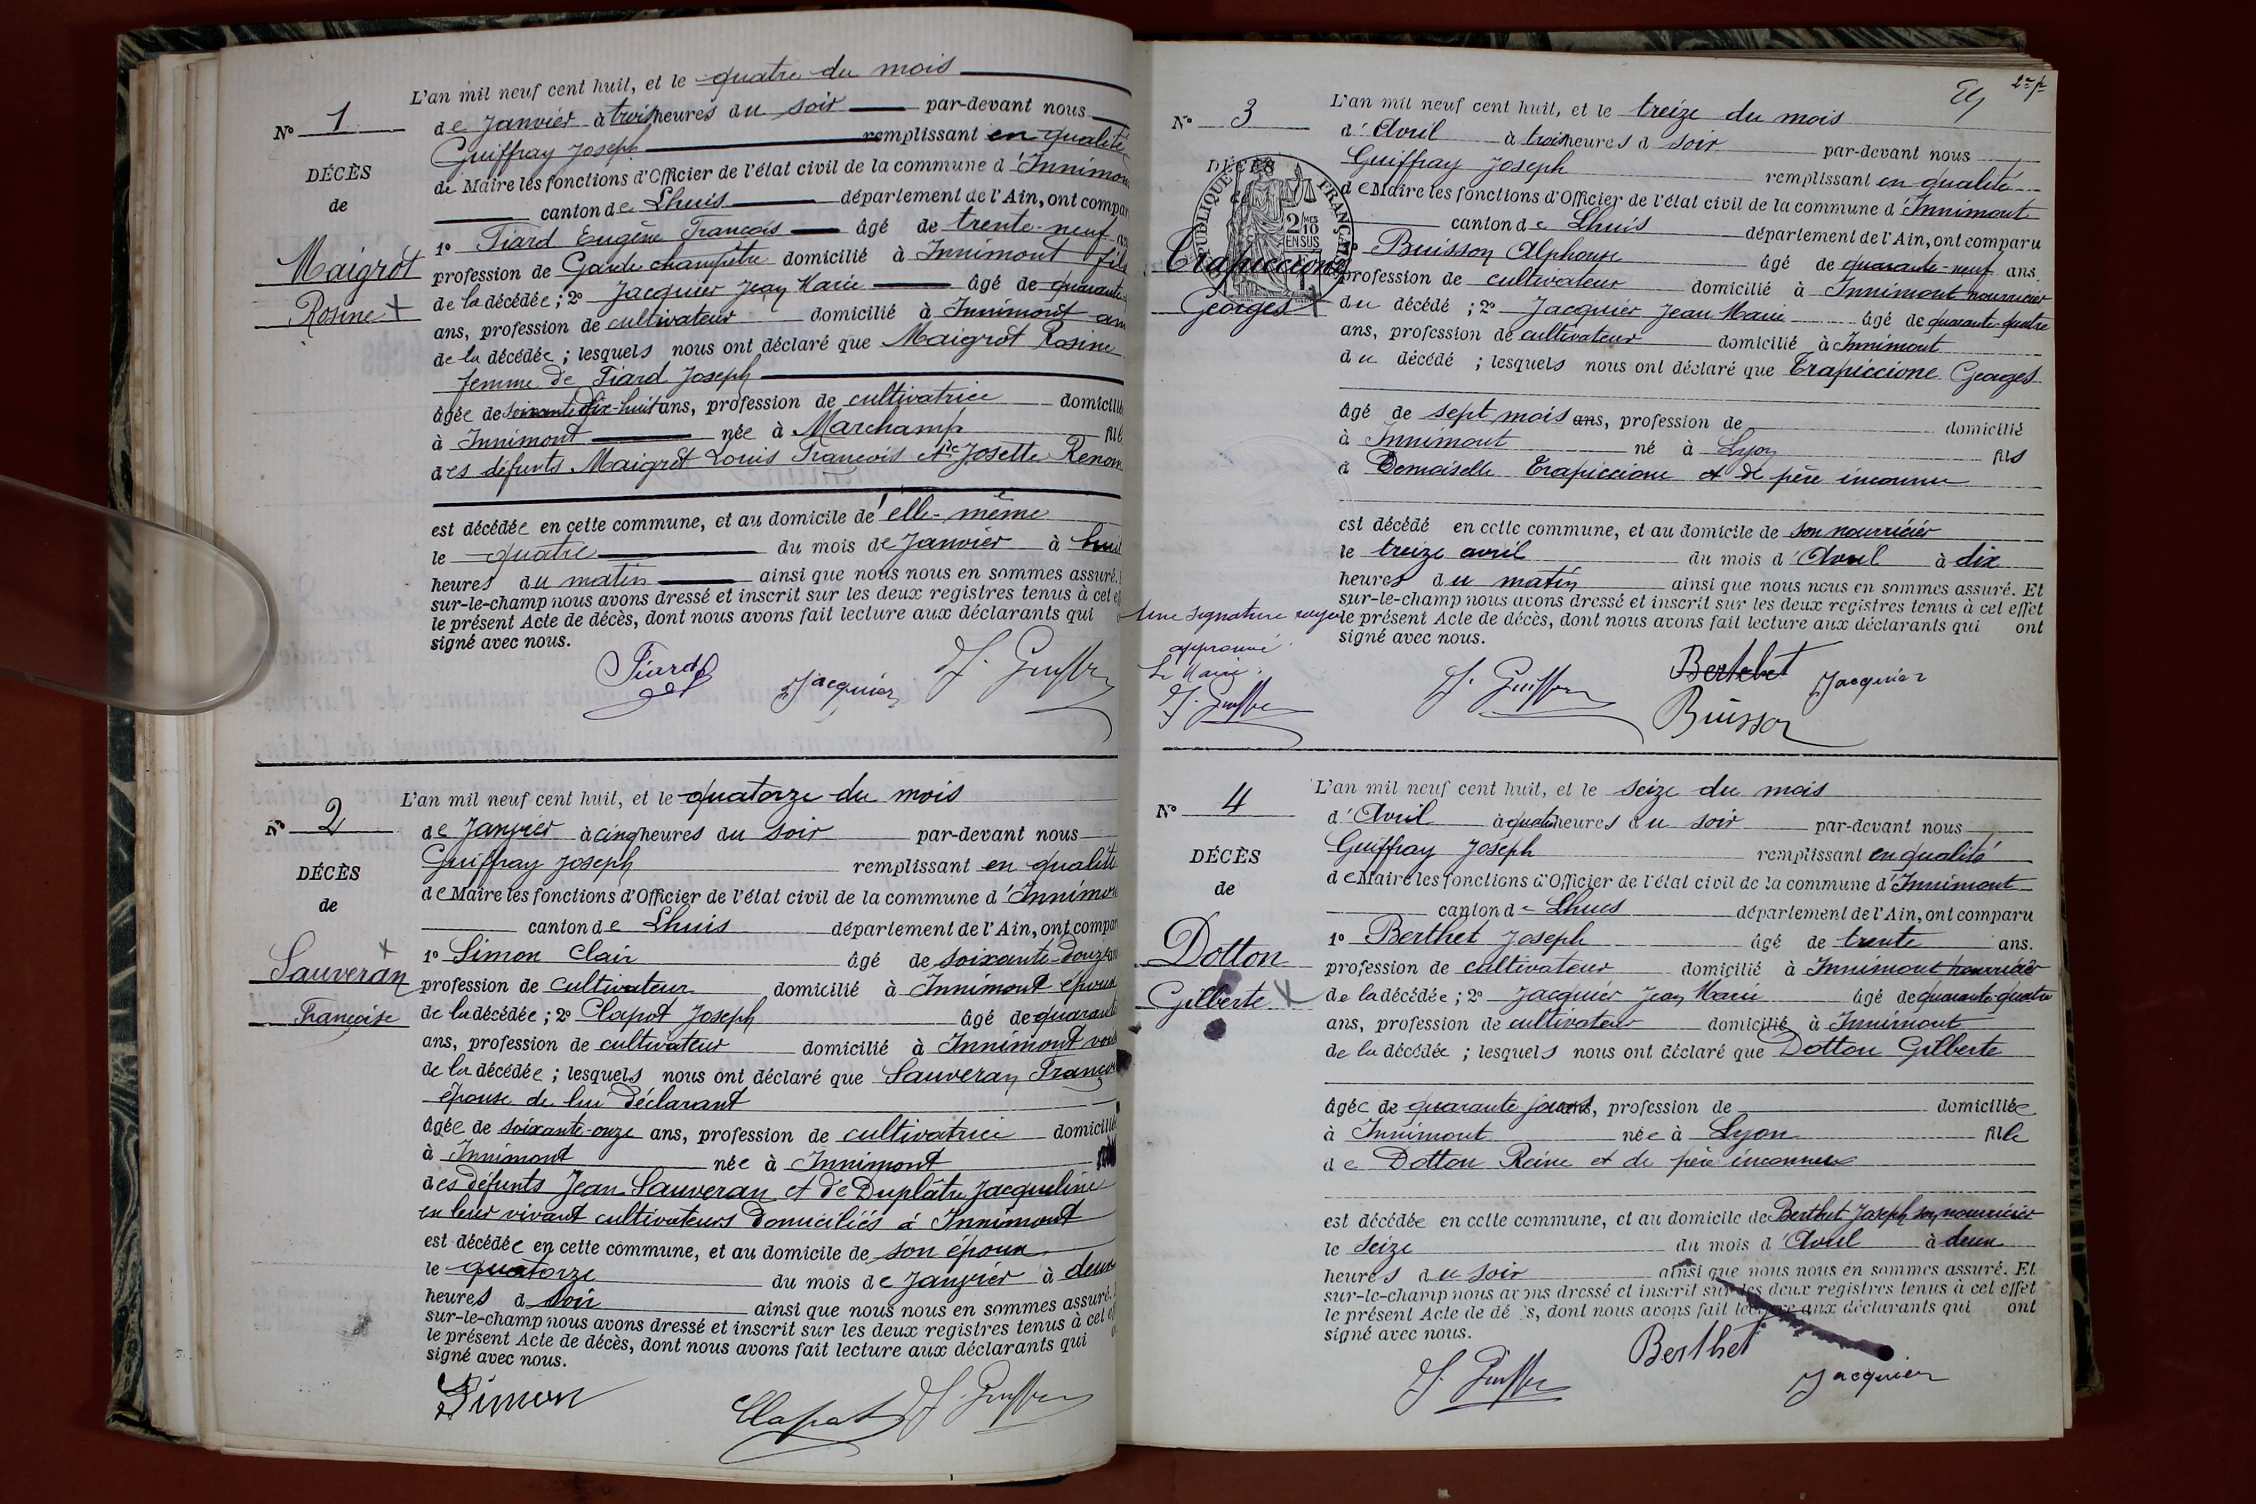 N° 1
DÉCÈS
de
Maigrot
Rosine +
L'an mil neuf cent huit, et le quatre du mois
de Janvier à trois heures du soir par-devant nous
Guiffray Joseph remplissant en qualité
de Maire les fonctions d'Officier de l'état civil de la commune d'Innimon
canton de Lhuis département de l'Ain, ont compar
1° Tiard Eugène François âgé de trente-neuf an
profession de Garde champêtre domicilié à Innimont fils
de la décédée ; 2° Jacquier Jean Marie âgé de quarante
ans, profession de cultivateur domicilié à Innimont am
de la décédée ; lesquels nous ont déclaré que Maigrot Rosine
femme de Tiard Joseph
âgée de soixante dix-huit ans, profession de cultivatrice domicilié
à Innimont née à Marchamp fille
des défunts Maigrot Louis François et de Josette Renom
est décédée en cette commune, et au domicile de elle-même
le quatre du mois de Janvier à huit
heures du matin ainsi que nous nous en sommes assuré.
sur-le-champ nous avons dressé et inscrit sur les deux registres tenus à cet e
le présent Acte de décès, dont nous avons fait lecture aux déclarants qui
signé avec nous.
Tiard Jacquier J. Guiffray
N° 2
DÉCÈS
de
Sauveran +
Françoise
L'an mil neuf cent huit, et le quatorze du mois
de Janvier à cinq heures du soir par-devant nous
Guiffray Joseph remplissant en qualité
de Maire les fonctions d'Officier de l'état civil de la commune d'Innimon
canton de Lhuis département de l'Ain, ont compar
1° Simon Clair âgé de soixante-douze an
profession de cultivateur domicilié à Innimont époux
de la décédée ; 2° Clapot Joseph âgé de quarante
ans, profession de cultivateur domicilié à Innimont vois
de la décédée ; lesquels nous ont déclaré que Sauveran Franço
épouse de lui déclarant
âgée de soixante-onze ans, profession de cultivatrice domicilié
à Innimont née à Innimont
des défunts Jean Sauveran et de Duplâtre Jacqueline
en leur vivant cultivateurs domiciliés à Innimont
est décédée en cette commune, et au domicile de son époux
le quatorze du mois de Janvier à deux
heures d soir ainsi que nous nous en sommes assuré.
sur-le-champ nous avons dressé et inscrit sur les deux registres tenus à cet ef
le présent Acte de décès, dont nous avons fait lecture aux déclarants qui
signé avec nous.
Simon Clapot J. Guiffray
N° 3
DÉCÈS
de
RÉPUBLIQUE FRANÇAISE
2/10 EN SUS
Trapiccione
Georges +
L'an mil neuf cent huit, et le treize du mois
d'Avril à trois heures d soir par-devant nous
Guiffray Joseph remplissant en qualité
de Maire les fonctions d'Officier de l'état civil de la commune d'Innimont
canton de Lhuis département de l'Ain, ont comparu
1° Buisson Alphonse âgé de quarante-neuf ans
profession de cultivateur domicilié à Innimont nourricier
du décédé ; 2° Jacquier Jean Marie âgé de quarante-quatre
ans, profession de cultivateur domicilié à Innimont
du décédé ; lesquels nous ont déclaré que Trapiccione Georges
âgé de sept mois ans, profession de domicilié
à Innimont né à Lyon fils
d Demoiselle Trapiccione et de père inconnu
est décédé en cette commune, et au domicile de son nourricier
le treize avril du mois d'Avril à dix
heures du matin ainsi que nous nous en sommes assuré. Et
sur-le-champ nous avons dressé et inscrit sur les deux registres tenus à cet effet
le présent Acte de décès, dont nous avons fait lecture aux déclarants qui ont
signé avec nous.
Une signature rayée
approuvé
Le Maire
J. Guiffray
J. Guiffray Bertebet Jacquier
Buisson
N° 4
DÉCÈS
de
Dotton
Gilberte +
L'an mil neuf cent huit, et le seize du mois
d'Avril à quatre heures du soir par-devant nous
Guiffray Joseph remplissant en qualité
de Maire les fonctions d'Officier de l'état civil de la commune d'Innimont
canton de Lhuis département de l'Ain, ont comparu
1° Berthet Joseph âgé de trente ans.
profession de cultivateur domicilié à Innimont nourricier
de la décédée ; 2° Jacquier Jean Marie âgé de quarante-quatre
ans, profession de cultivateur domicilié à Innimont
de la décédée ; lesquels nous ont déclaré que Dotton Gilberte
âgée de quarante jours, profession de domiciliée
à Innimont née à Lyon fille
de Dotton Reine et de père inconnu
est décédée en cette commune, et au domicile de Berthet Joseph son nourricier
le seize du mois d'Avril à deux
heures du soir ainsi que nous nous en sommes assuré. Et
sur-le-champ nous avons dressé et inscrit sur les deux registres tenus à cet effet
le présent Acte de dé s, dont nous avons fait lecture aux déclarants qui ont
signé avec nous.
J. Guiffray Berthet Jacquier